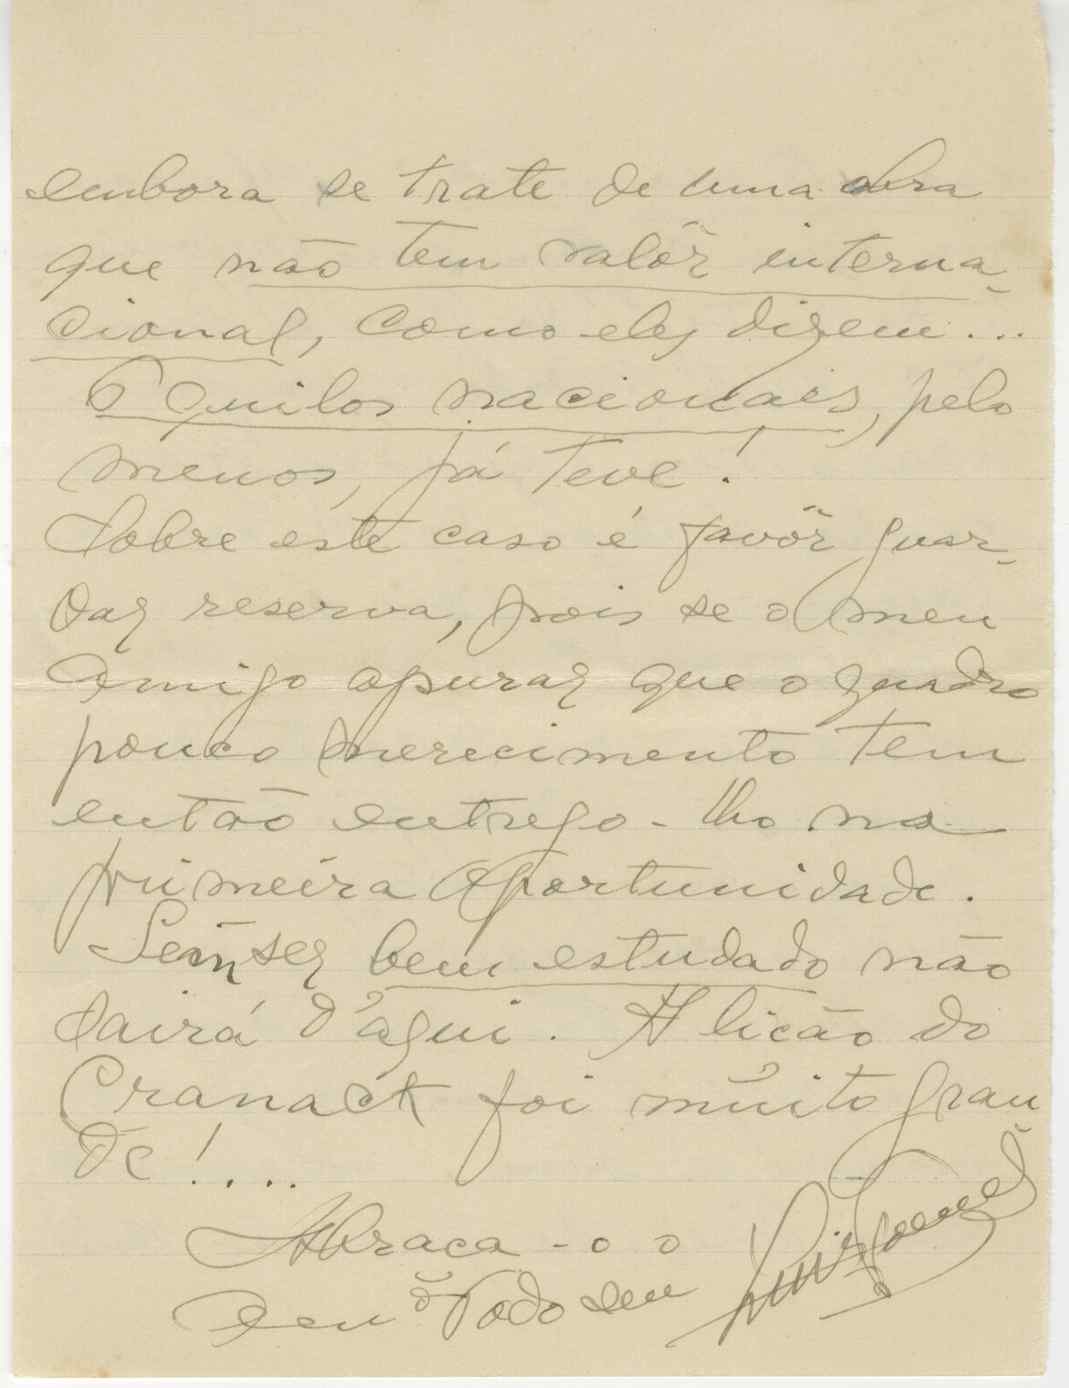 embora se trate de uma obra
que não tem valôr interna-
cional, como eles dizem...
6 quilos nacionais, pelo
menos, já teve!
Sobre éste caso é favôr guar-
dar reserva, pois se o meu
Amigo apurar que o quadro
pouco merecimento tem
então entrego-lho na
primeira oportunidade.
Sem ser bem estudado não
sairá d'aqui. A lição do
Cranack foi muito gran-
de!....
Abraca-o o
seu Todo seu
Luiz Gomes